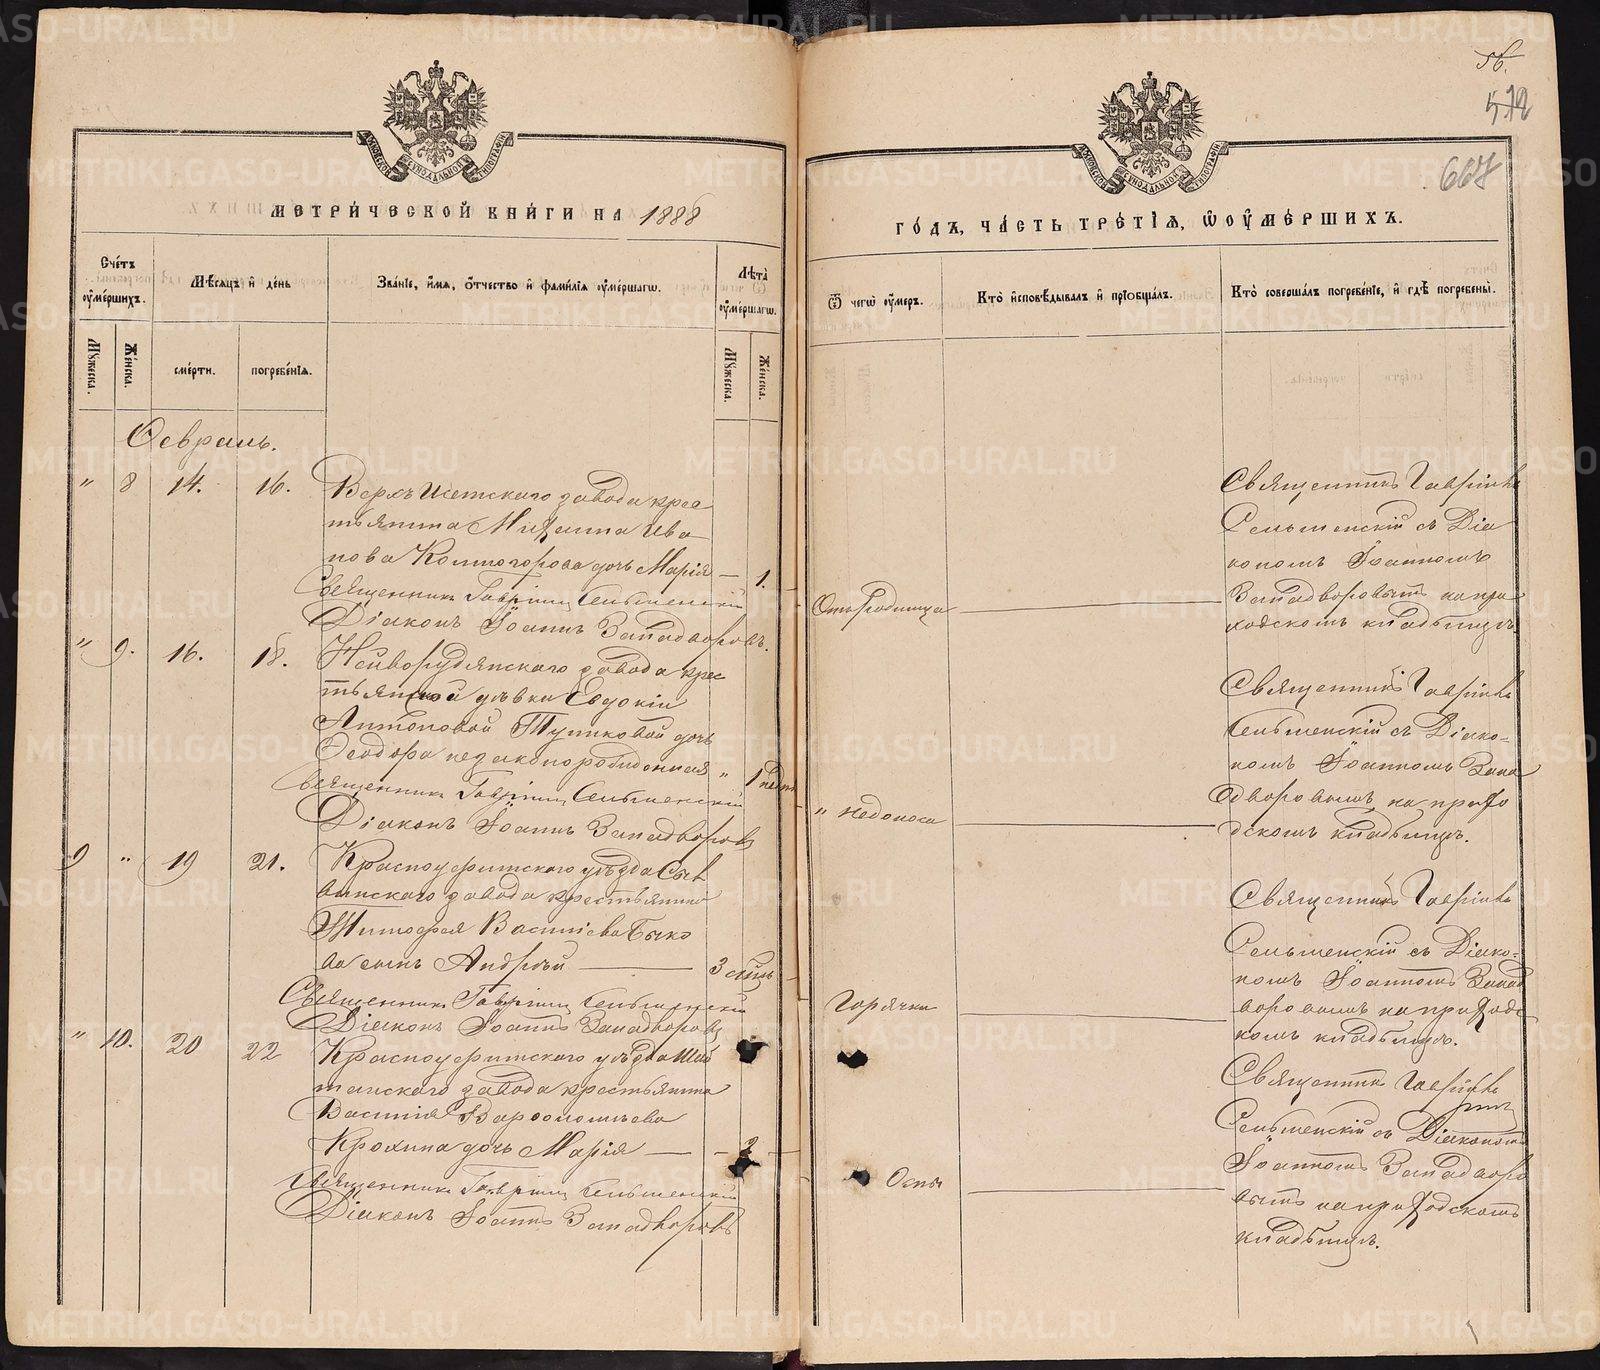 56.
572
667
МЕТРИЧЕСКОЙ КНИГИ НА 1888
ГОДЪ, ЧАСТЬ ТРЕТІЯ, Ѿ ОУМЕРШИХЪ.
Счетъ оумершихъ.
Мѣсяцъ и день
Званіе, имя, отчество и фамилія оумершагѡ.
Лѣта оумершагѡ.
Ѿ чегѡ оумеръ.
Кто исповѣдывалъ и пріобщалъ.
Кто совершалъ погребеніе, и гдѣ погребены.
Мужеска.
Женска.
смерти.
погребенія.
Мужеска.
Женска.
Февраль.
" 8 14. 16. Верхъ Исетскаго завода крес
тьянина Михаила Ива
нова Колмогорова дочь Марія — 1.
Священникъ Гавріилъ Сельменскій
Діаконъ Іоаннъ Западворовъ.
Отъ Родимца
Священникъ Гавріилъ
Сельменскій съ Діа
кономъ Іоанномъ
Западворовымъ на при
ходскомъ кладбищѣ.
" 9. 16. 18. Нейворудянскаго завода крес
тьянской дѣвки Евдокіи
Антоновой Тупиковой дочь
Феодора незаконорожденная " 1
Священникъ Гавріилъ Сельменскій
Діаконъ Іоаннъ Западворовъ
" недоноса
Священникъ Гавріилъ
Сельменскій съ Діако-
номъ Іоанномъ Запа
дворовымъ на прихо
дскомъ кладбищѣ.
9 " 19 21. Красноуфимскаго уѣзда Сыл
винскаго завода крестьянина
Тимофея Василіева Быко
ва сынъ Андрей — 3
Священникъ Гавріилъ Сельменскій
Діаконъ Іоаннъ Западворовъ
Горячки
Священникъ Гавріилъ
Сельменскій съ Діако-
номъ Іоанномъ Запад
воровымъ на приходс
комъ кладбищѣ.
" 10. 20 22 Красноуфимскаго уѣзда Шай
танскаго завода крестьянина
Василія Варфоломѣева
Крохина дочь Марія — - 2
Священникъ Гавріилъ Сельменскій
Діаконъ Іоаннъ Западворовъ
Оспы
Священникъ Гавріилъ
Сельменскій съ Діакономъ
Іоанномъ Западворо
вымъ на приходскомъ
кладбищѣ.
METRIKI.GASO-URAL.RU